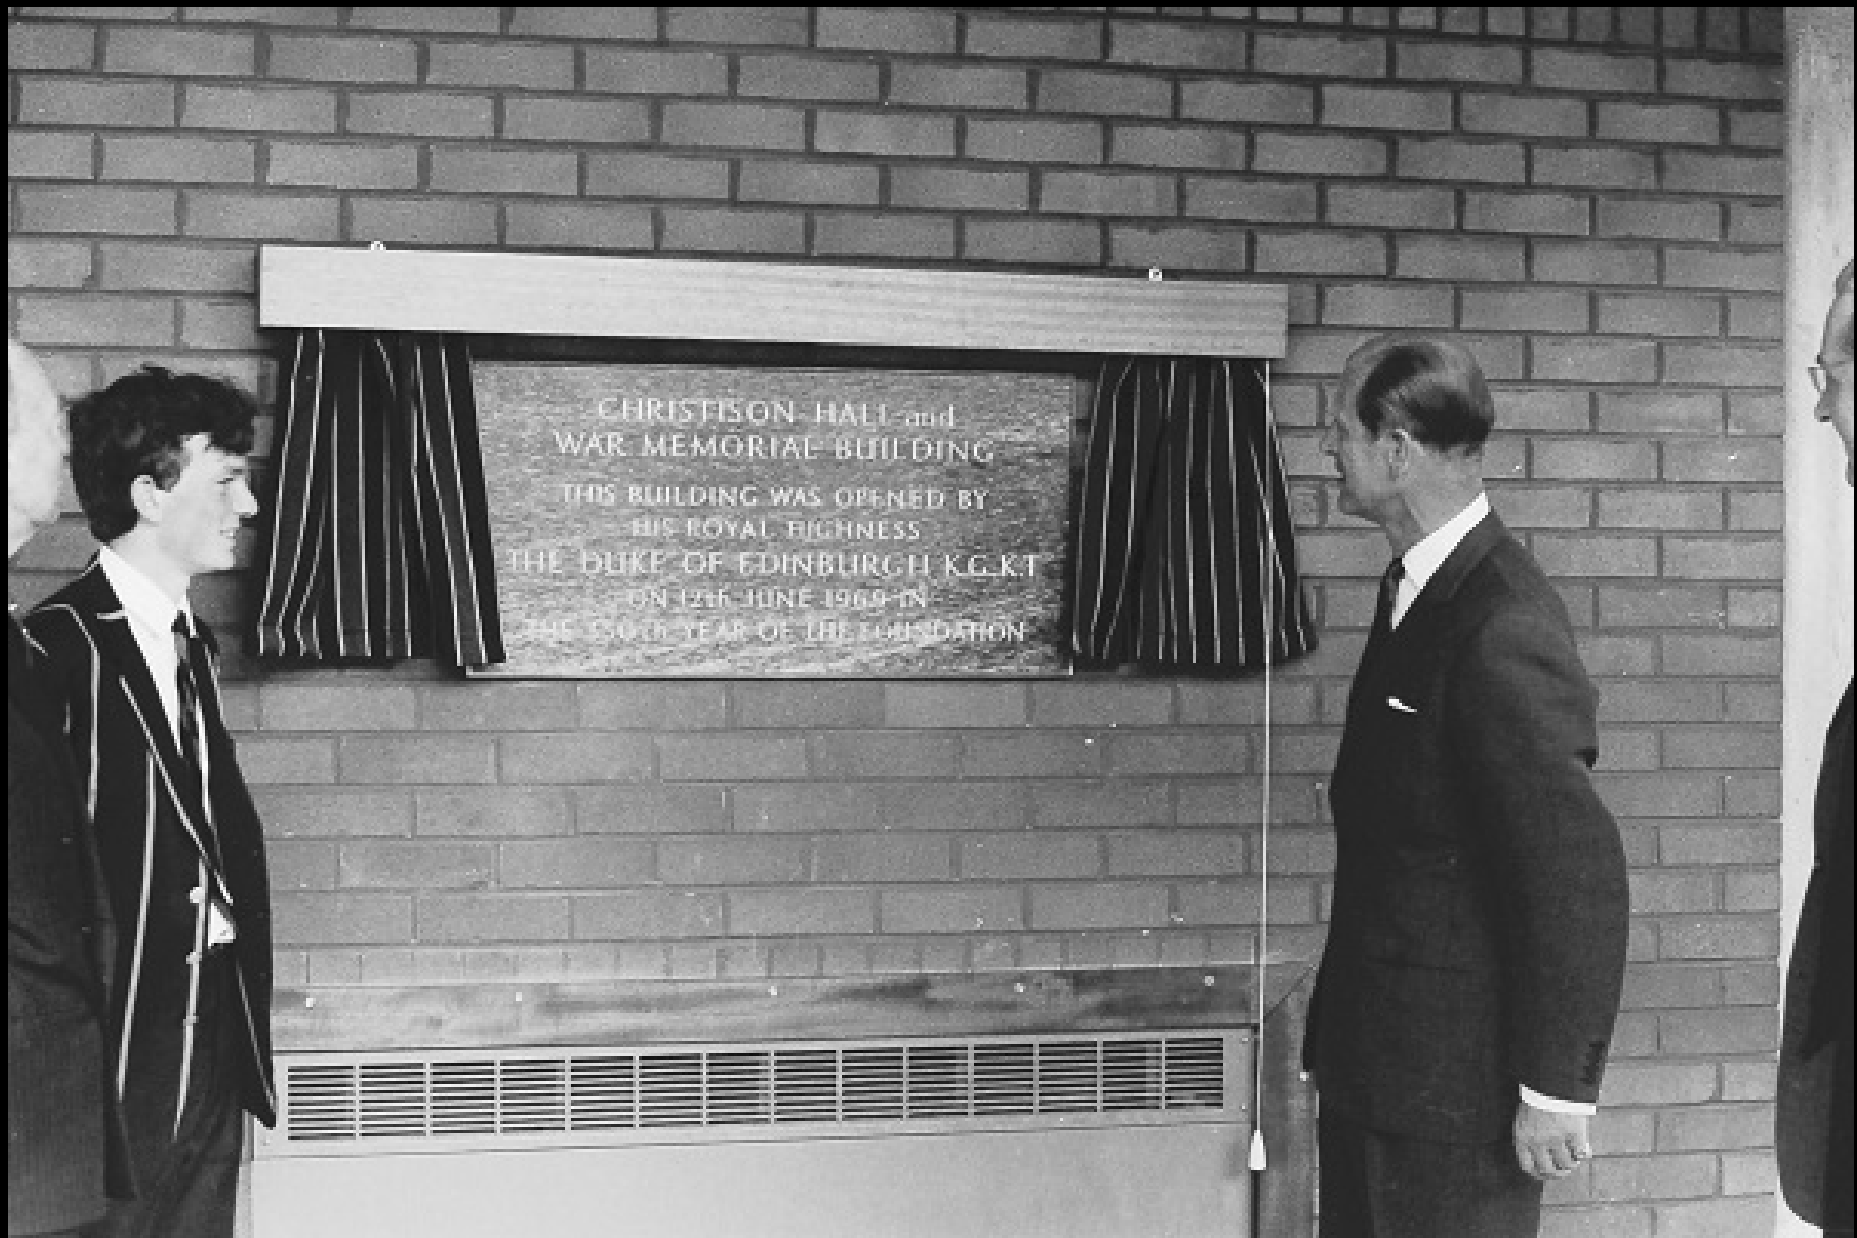 CHRISTISON HALL and
WAR MEMORIAL BUILDING
THIS BUILDING WAS OPENED BY
HIS ROYAL HIGHNESS
THE DUKE OF EDINBURGH K.G.K.T
ON 12th JUNE 1969 IN
THE 350th YEAR OF THE FOUNDATION